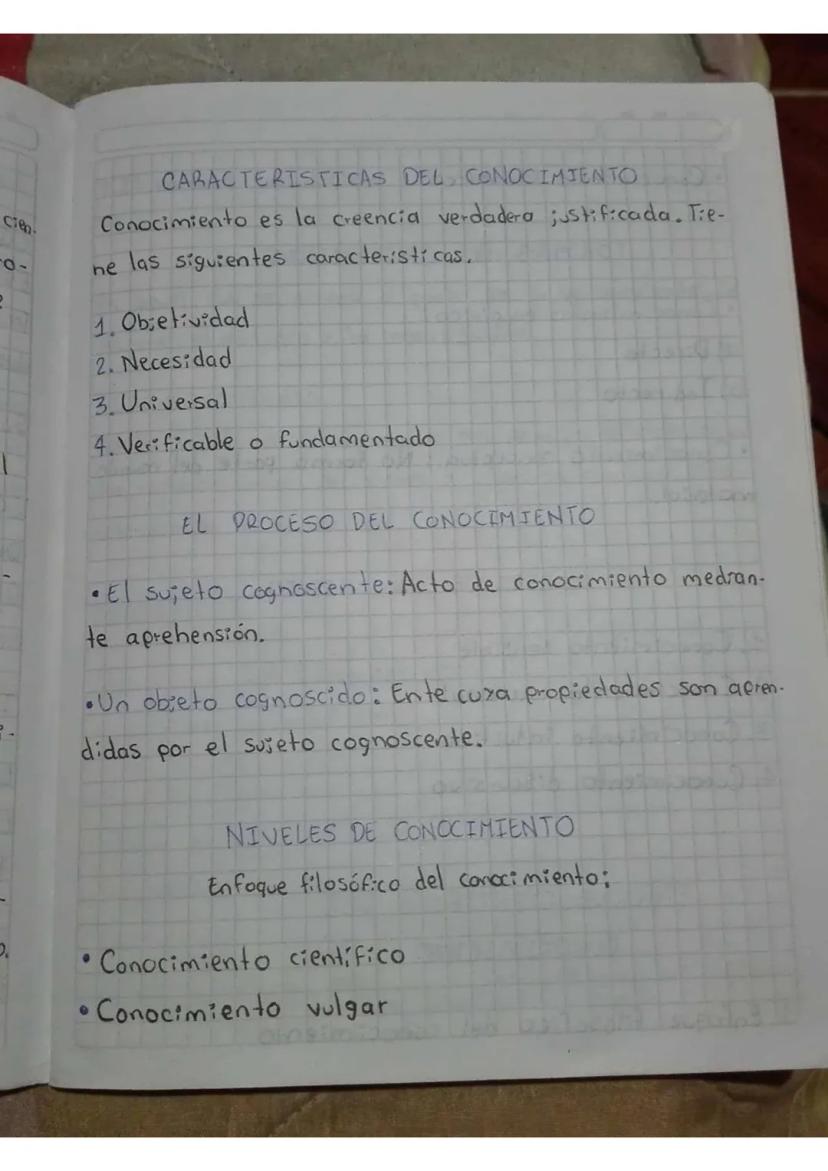 CARACTERISTICAS DEL CONOCIMIENTO
Conocimiento es la creencia verdadera justificada. Tie-
ne las siguientes caracteristicas.
1. Objetividad
2. Necesidad
3. Universal
4. Verificable o fundamentado
EL PROCESO DEL CONOCIMIENTO
• El sujeto cognoscente: Acto de conocimiento median-
te aprehensión.
• Un objeto cognoscido: Ente cuya propiedades son apren-
didas por el sujeto cognoscente.
NIVELES DE CONOCIMIENTO
Enfoque filosófico del conocimiento:
• Conocimiento científico
• Conocimiento vulgar
cien.